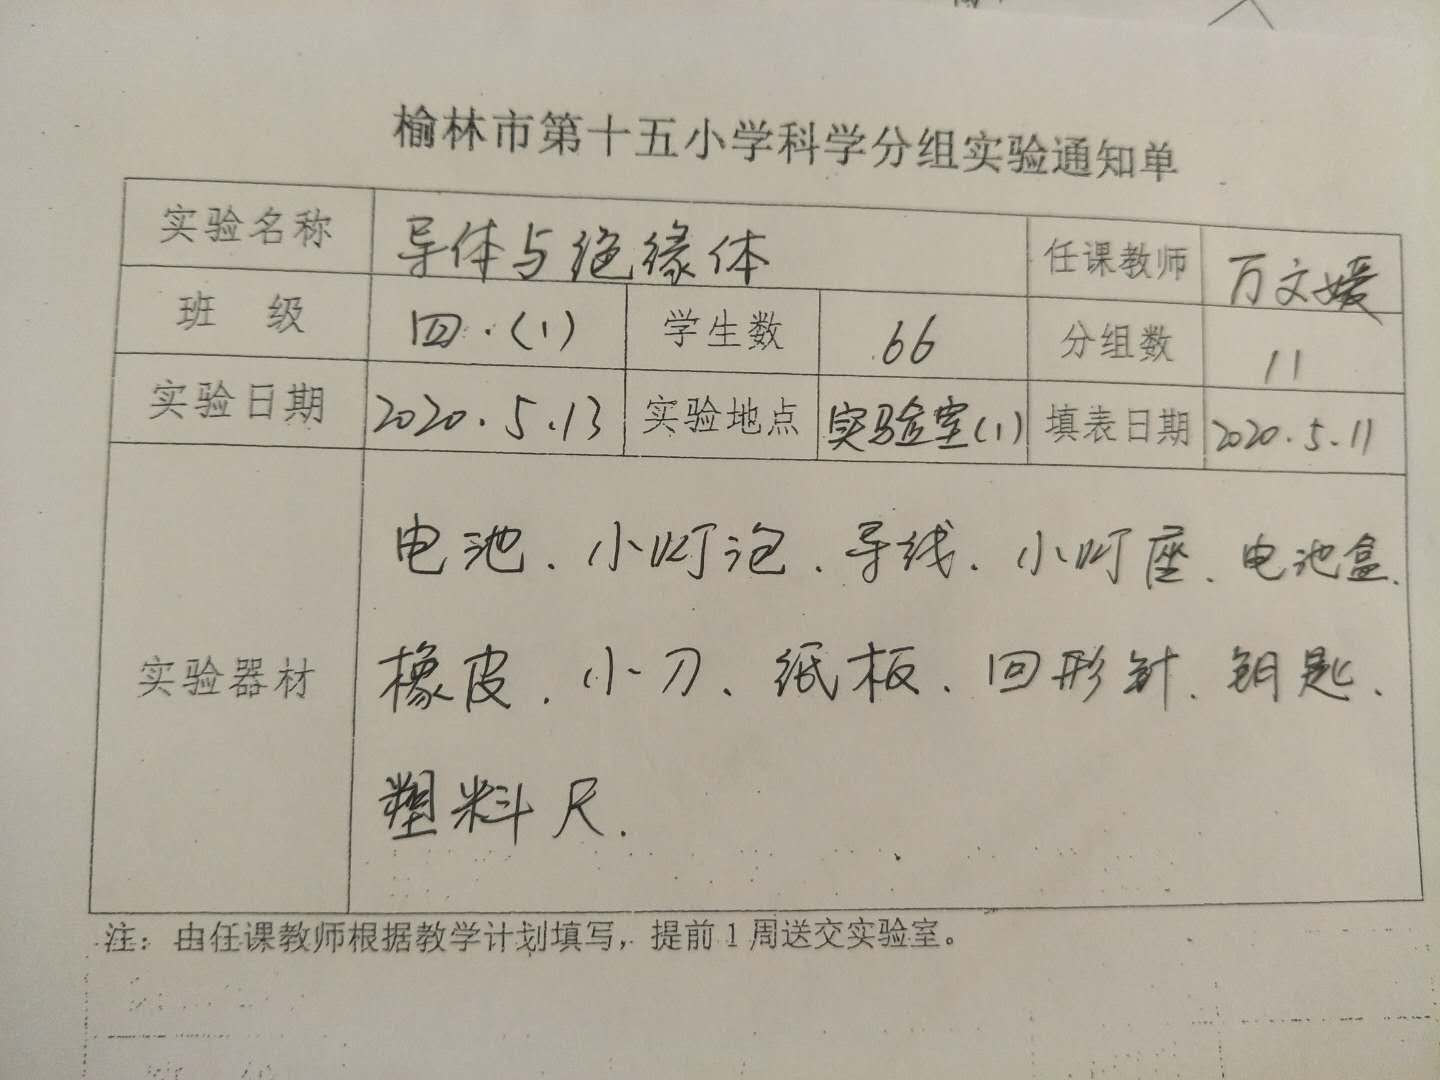 榆林市第十五小学科学分组实验通知单
实验名称 导体与绝缘体 任课教师 万文媛
班 级 四.(1) 学生数 66 分组数 11
实验日期 2020.5.13 实验地点 实验室(1) 填表日期 2020.5.11
电池、小灯泡、导线、小灯座、电池盒、
实验器材 橡皮、小刀、纸板、回形针、钥匙、
塑料尺.
注：由任课教师根据教学计划填写，提前1周送交实验室。